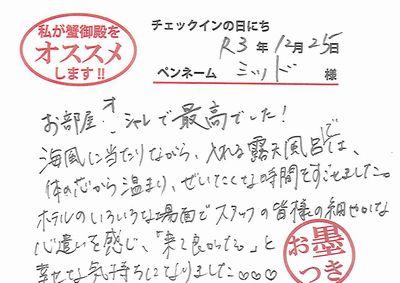 私が蟹御殿を
オススメ
します!!
チェックインの日にち
R3年12月25日
ペンネーム ミッド 様
お部屋、オシャレで最高でした!
海風に当たりながら、入れる露天風呂では、
体の芯から温まり、ぜいたくな時間をすごせました。
ホテルのいろいろな場面でスタッフの皆様の細やかな
心遣いを感じ、「来て良かった。」と
幸せな気持ちになりました♡♡♡
お墨
つき